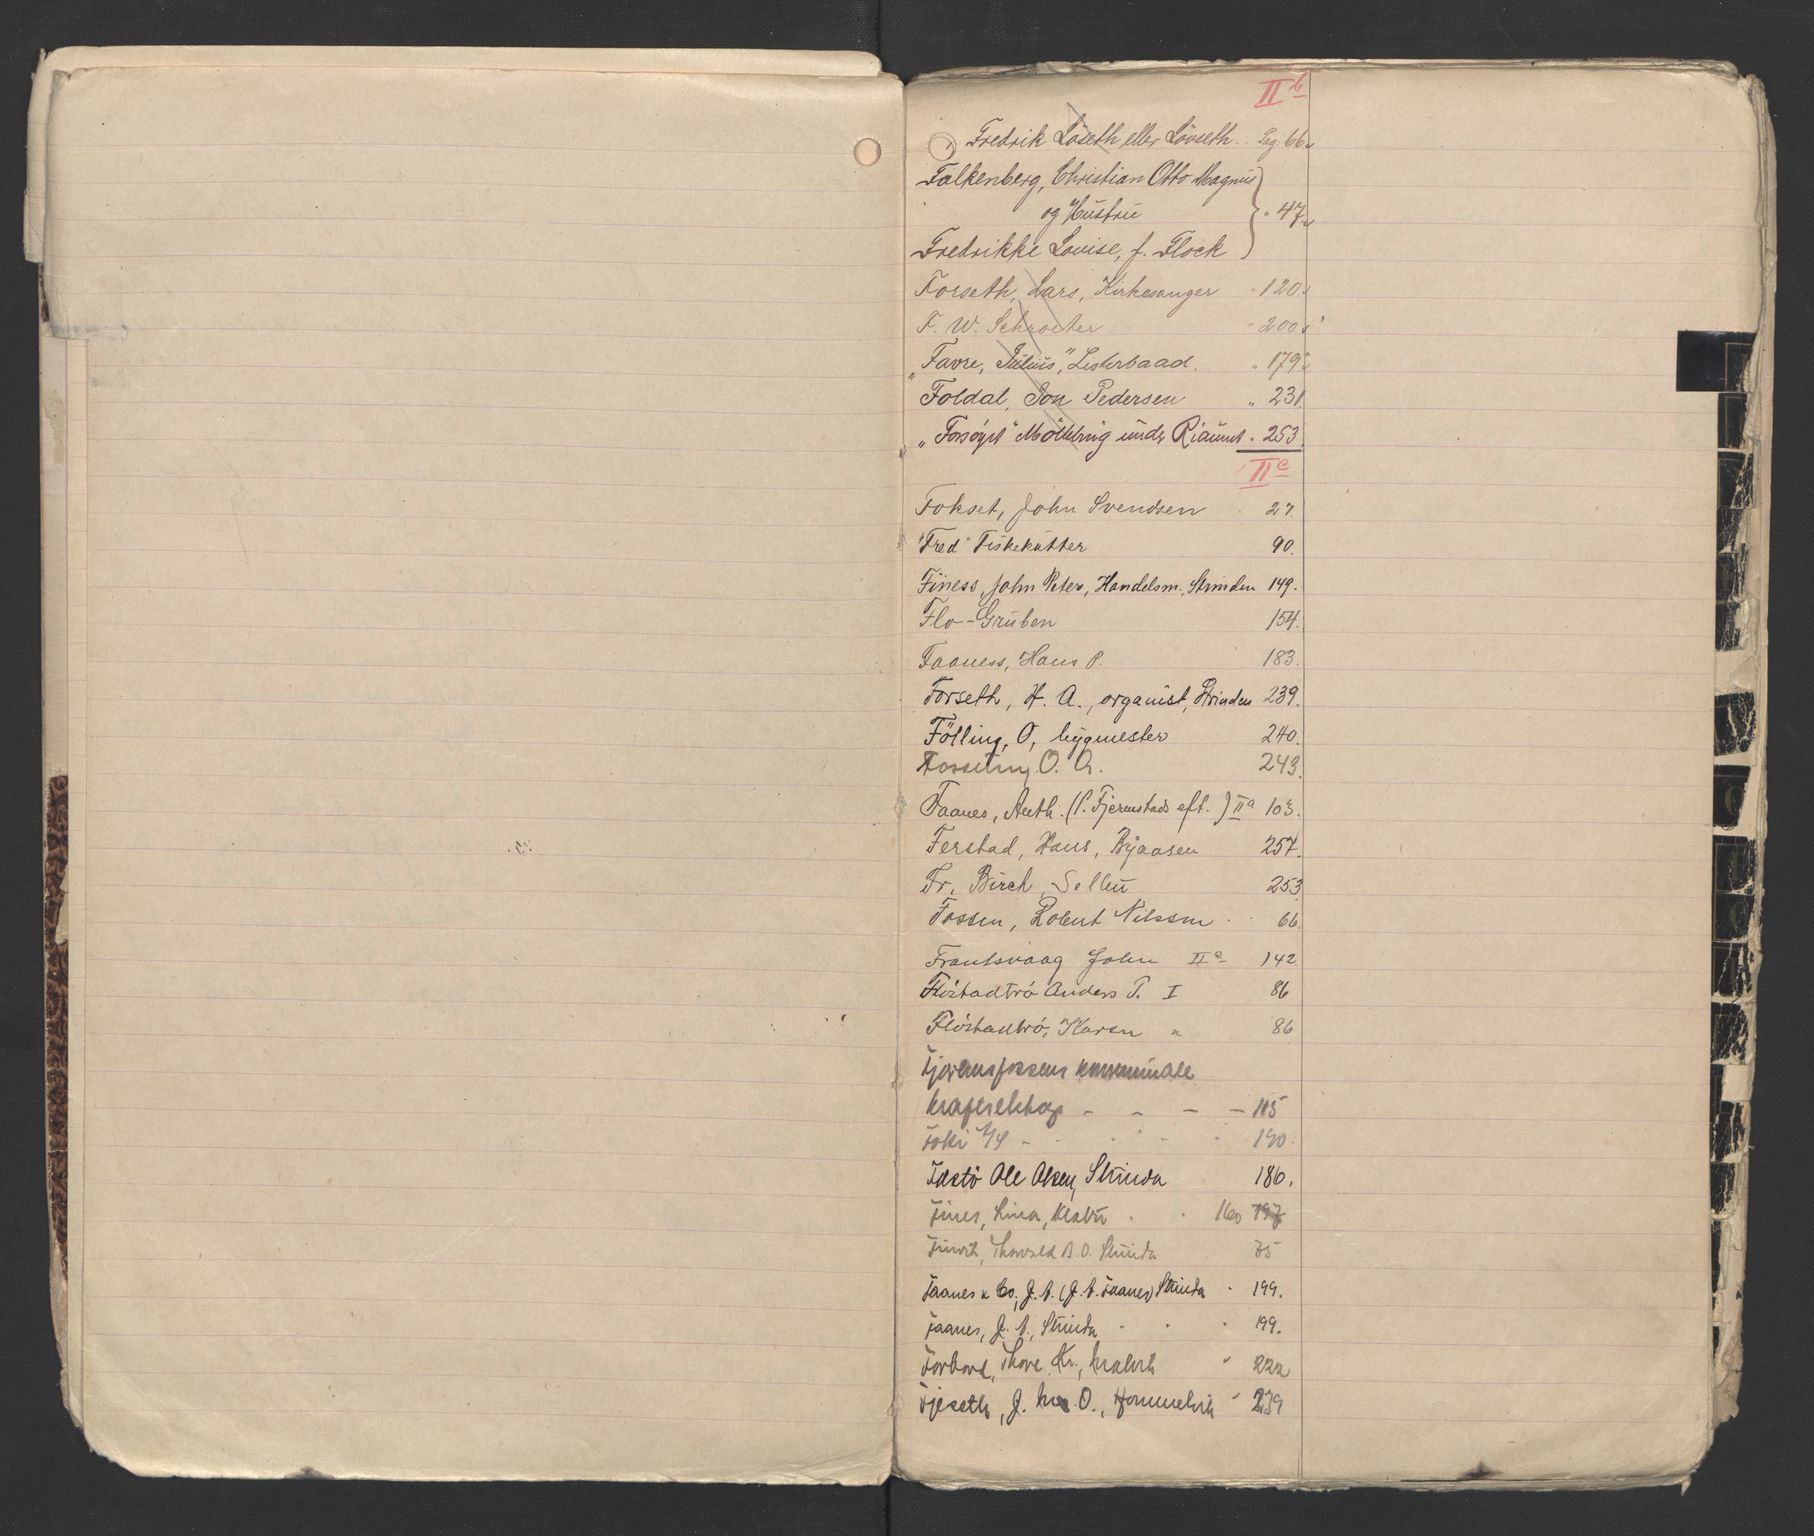 II b
Fredrik Löseth eller Lövseth. . Pag. 66
Falkenberg, Christian Otto Magnus
og Hustru " 47
Fredrikke Lovise, f. Flock
Forseth, Lars, Kirkesanger " 120
F. W. Schroeter " 200
"Favre, Julius", Listerbaad. " 179
Foldal, Jon Pedersen " 231
"Forsöget" Möllebrug under " 253.
II c
Fokset, John Svendsen 27.
"Fred" Fiskekutter 90.
Finess, John Peter, Handelsm., Strinden 149.
Flo-Gruben 154.
Faaness, Hans P. 183.
Forseth, H. A., organist, Strinden 239.
Fölling, O, bygmester 240.
O. A. 243.
Faanes, Anth. (P. Fjermstads eft.) II a 103.
Ferstad, Hans, Byaasen 257.
Fr. Birch, Selbu 253
Fossen, Robert Nilssen . . 66.
Frantsvaag John II c 142.
Flöstadtrö Anders P. I 86
Flöstadtrö, Karen " 86
kommunale
kraftselskap - - - - 115
Foki A/S - . . . . 190.
Ole Olsen, Strinda 186.
Fines, Lina, Klæbu . . 160 197
Thorvald B. O. Strinda 75
Faanes & Co, J. A. (J. A. Faanes) Strinda " 199.
Faanes, J. A., Strinda " " " 199.
Forbord, Thore Kr., Malvik " 222
Fjeseth, J. O., Hommelvik " 239